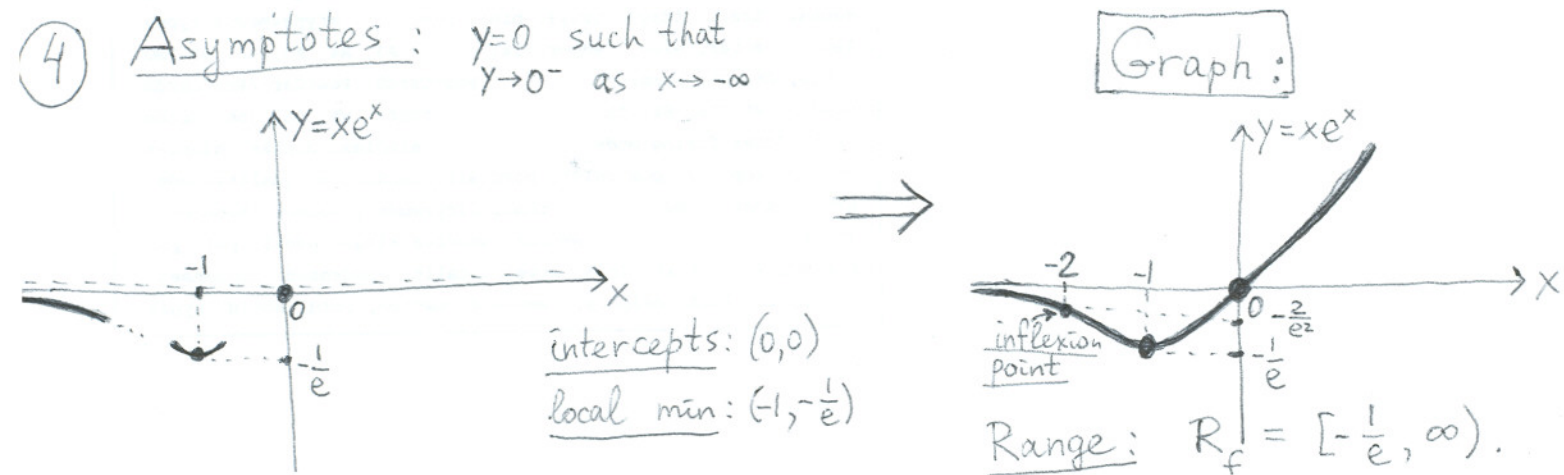 4 Asymptotes : y=0 such that
y→0⁻ as x→-∞
y=xeˣ
-1
0
x
-1/e
intercepts: (0,0)
local min: (-1,-1/e)
⇒
Graph :
y=xeˣ
-2 -1
0
x
-2/e²
-1/e
inflexion
point
Range: R_f = [-1/e, ∞).